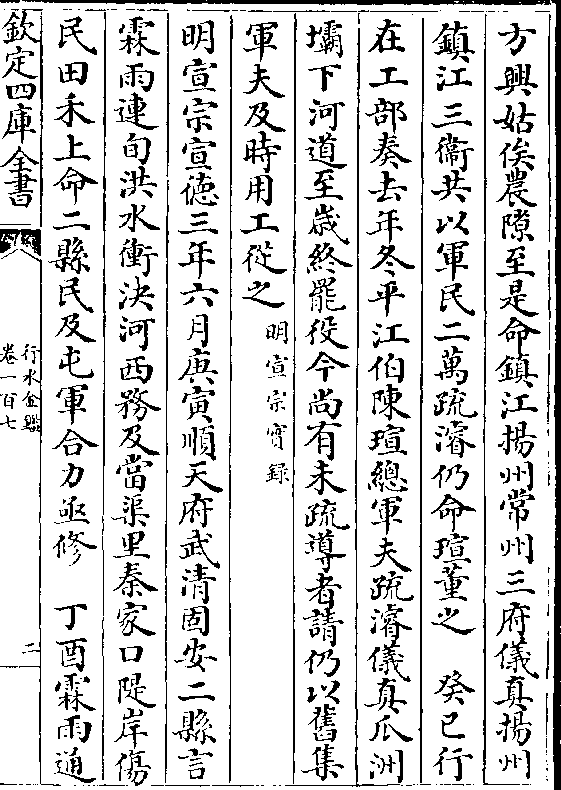 方興姑俟農隙至是命鎮江揚州常州三府儀真揚州
鎮江三衞共以軍民二萬疏濬仍命瑄董之　癸巳行
在工部奏去年冬平江伯陳瑄總軍夫疏濬儀真瓜洲
壩下河道至歲終罷役今尚有未疏導者請仍以舊集
軍夫及時用工從之明宣宗實録
明宣宗宣德三年六月庚寅順天府武清固安二縣言
霖雨連旬洪水衝決河西務及當渠里秦家口隄岸傷
民田禾上命二縣民及屯軍合力亟修　丁酉霖雨通
欽定四庫全書
行水金鑑
卷一百七
二